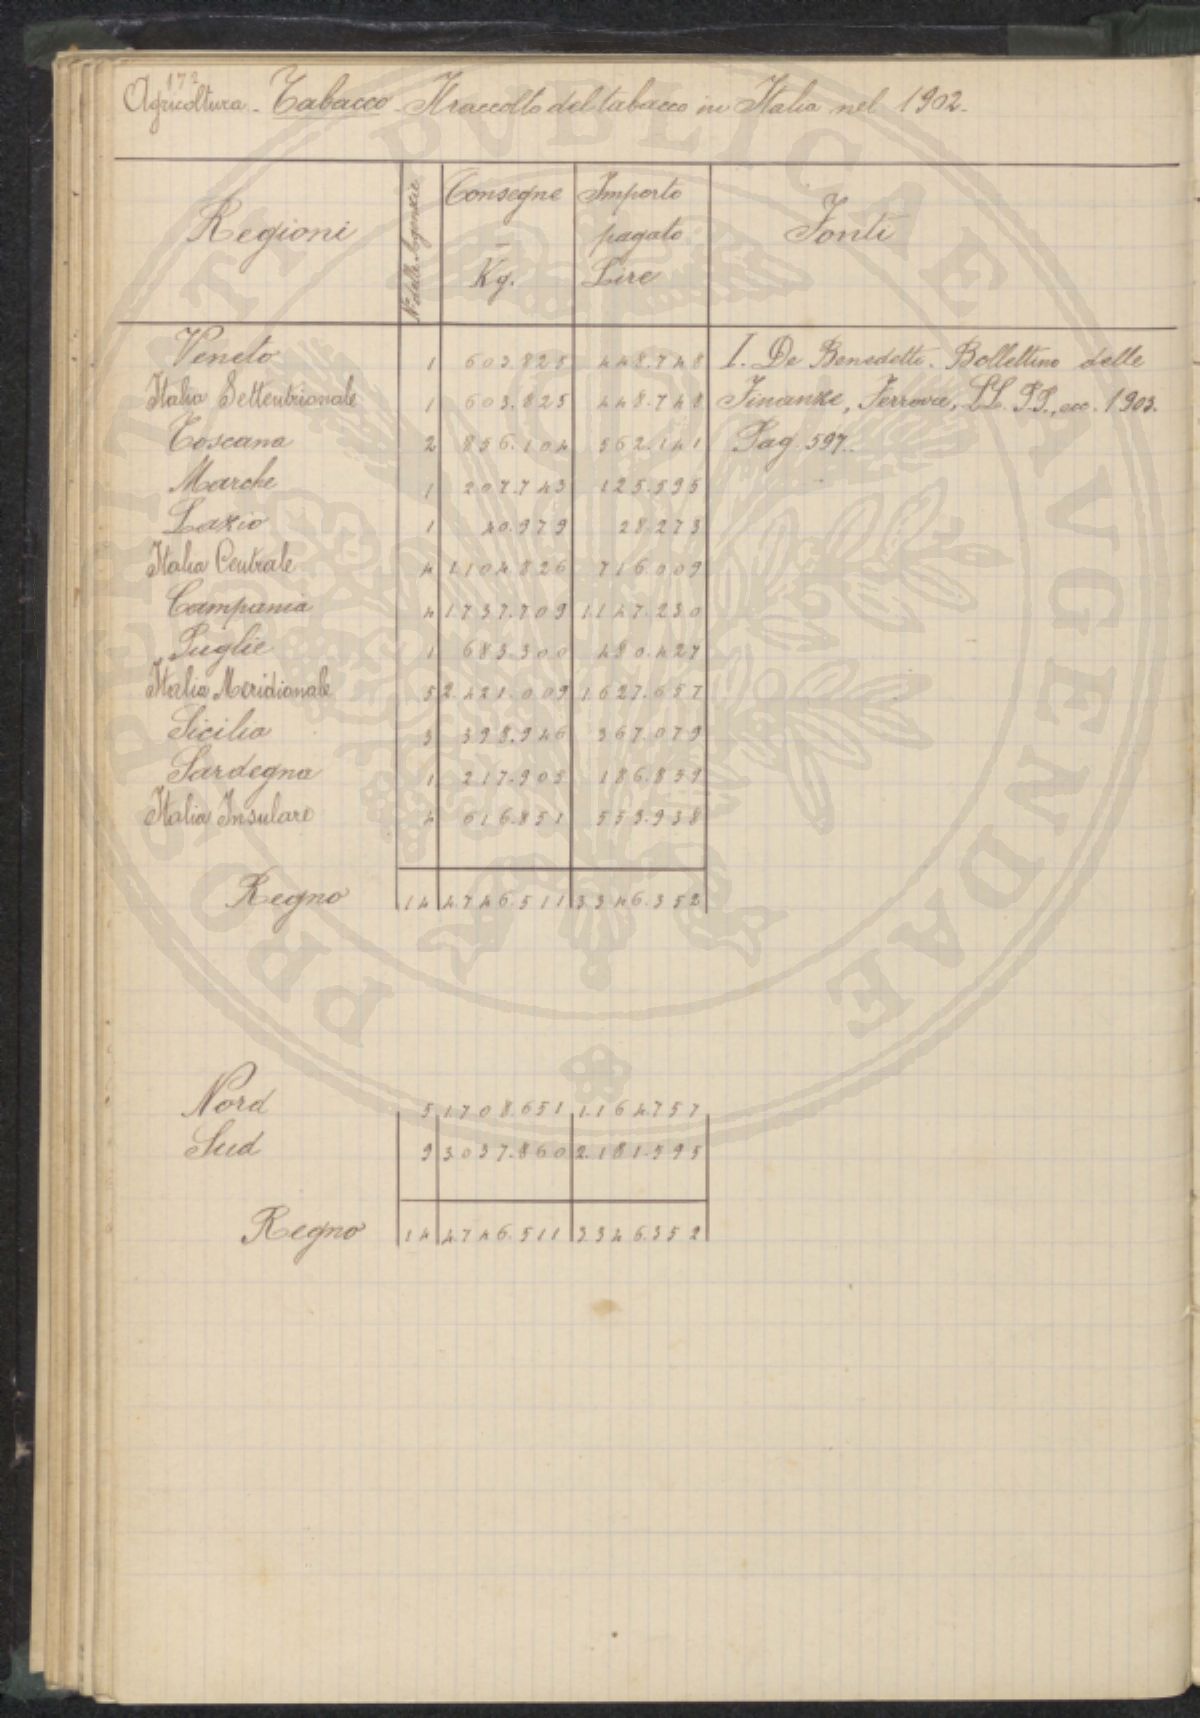 172
Agricoltura - Tabacco - Il raccolto del tabacco in Italia nel 1902.
Regioni | N° delle Agenzie | Consegne - Kg. | Importo pagato Lire | Fonti
Veneto 1 603.825 448.748 I. De Benedetti. Bollettino delle
Italia Settentrionale 1 603.825 448.748 Finanze, Ferrovie, LL. PP., ecc. 1903.
Toscana 2 856.104 562.141 Pag. 597.
Marche 1 207.743 125.595
Lazio 1 40.979 28.273
Italia Centrale 4 1.104.826 716.009
Campania 4 1.737.709 1.147.230
Puglie 1 683.300 480.427
Italia Meridionale 5 2.421.009 1.627.657
Sicilia 3 398.946 367.079
Sardegna 1 217.905 186.859
Italia Insulare 4 616.851 553.938
Regno 14 4.746.511 3.346.352
Nord 5 1.708.651 1.164.757
Sud 9 3.037.860 2.181.595
Regno 14 4.746.511 3.346.352
PROPERTATI PUBLICAE AVGENDAE